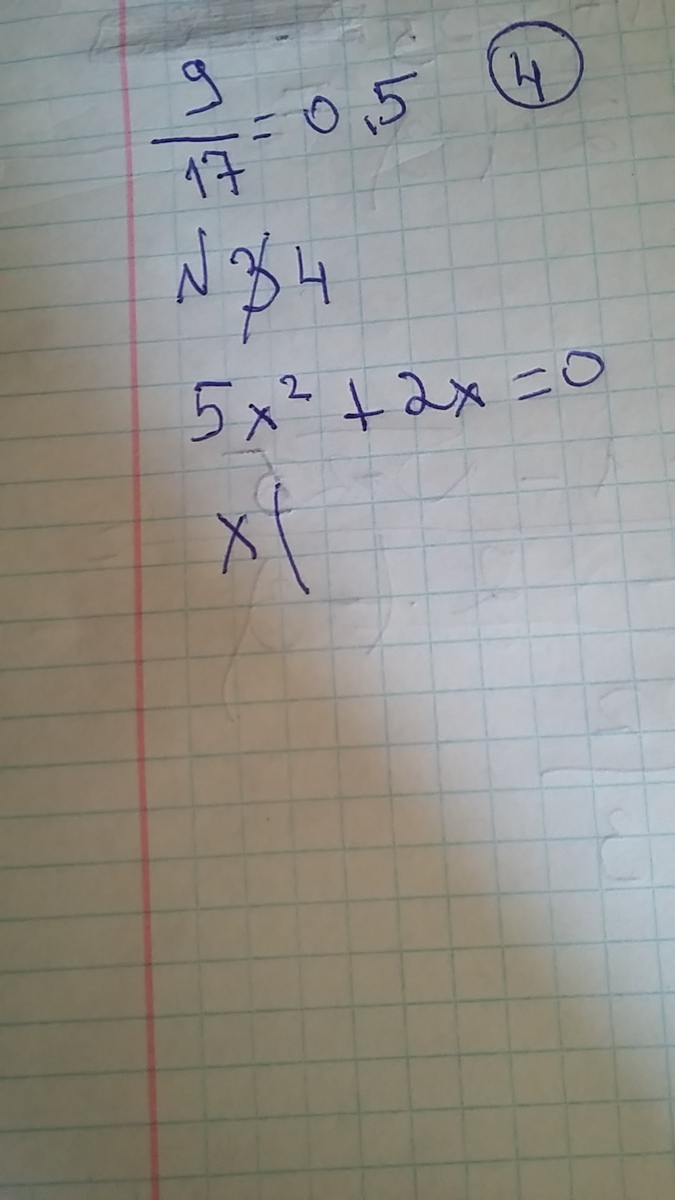 9/17 = 0,5 4
N 4
5x² + 2x = 0
x(